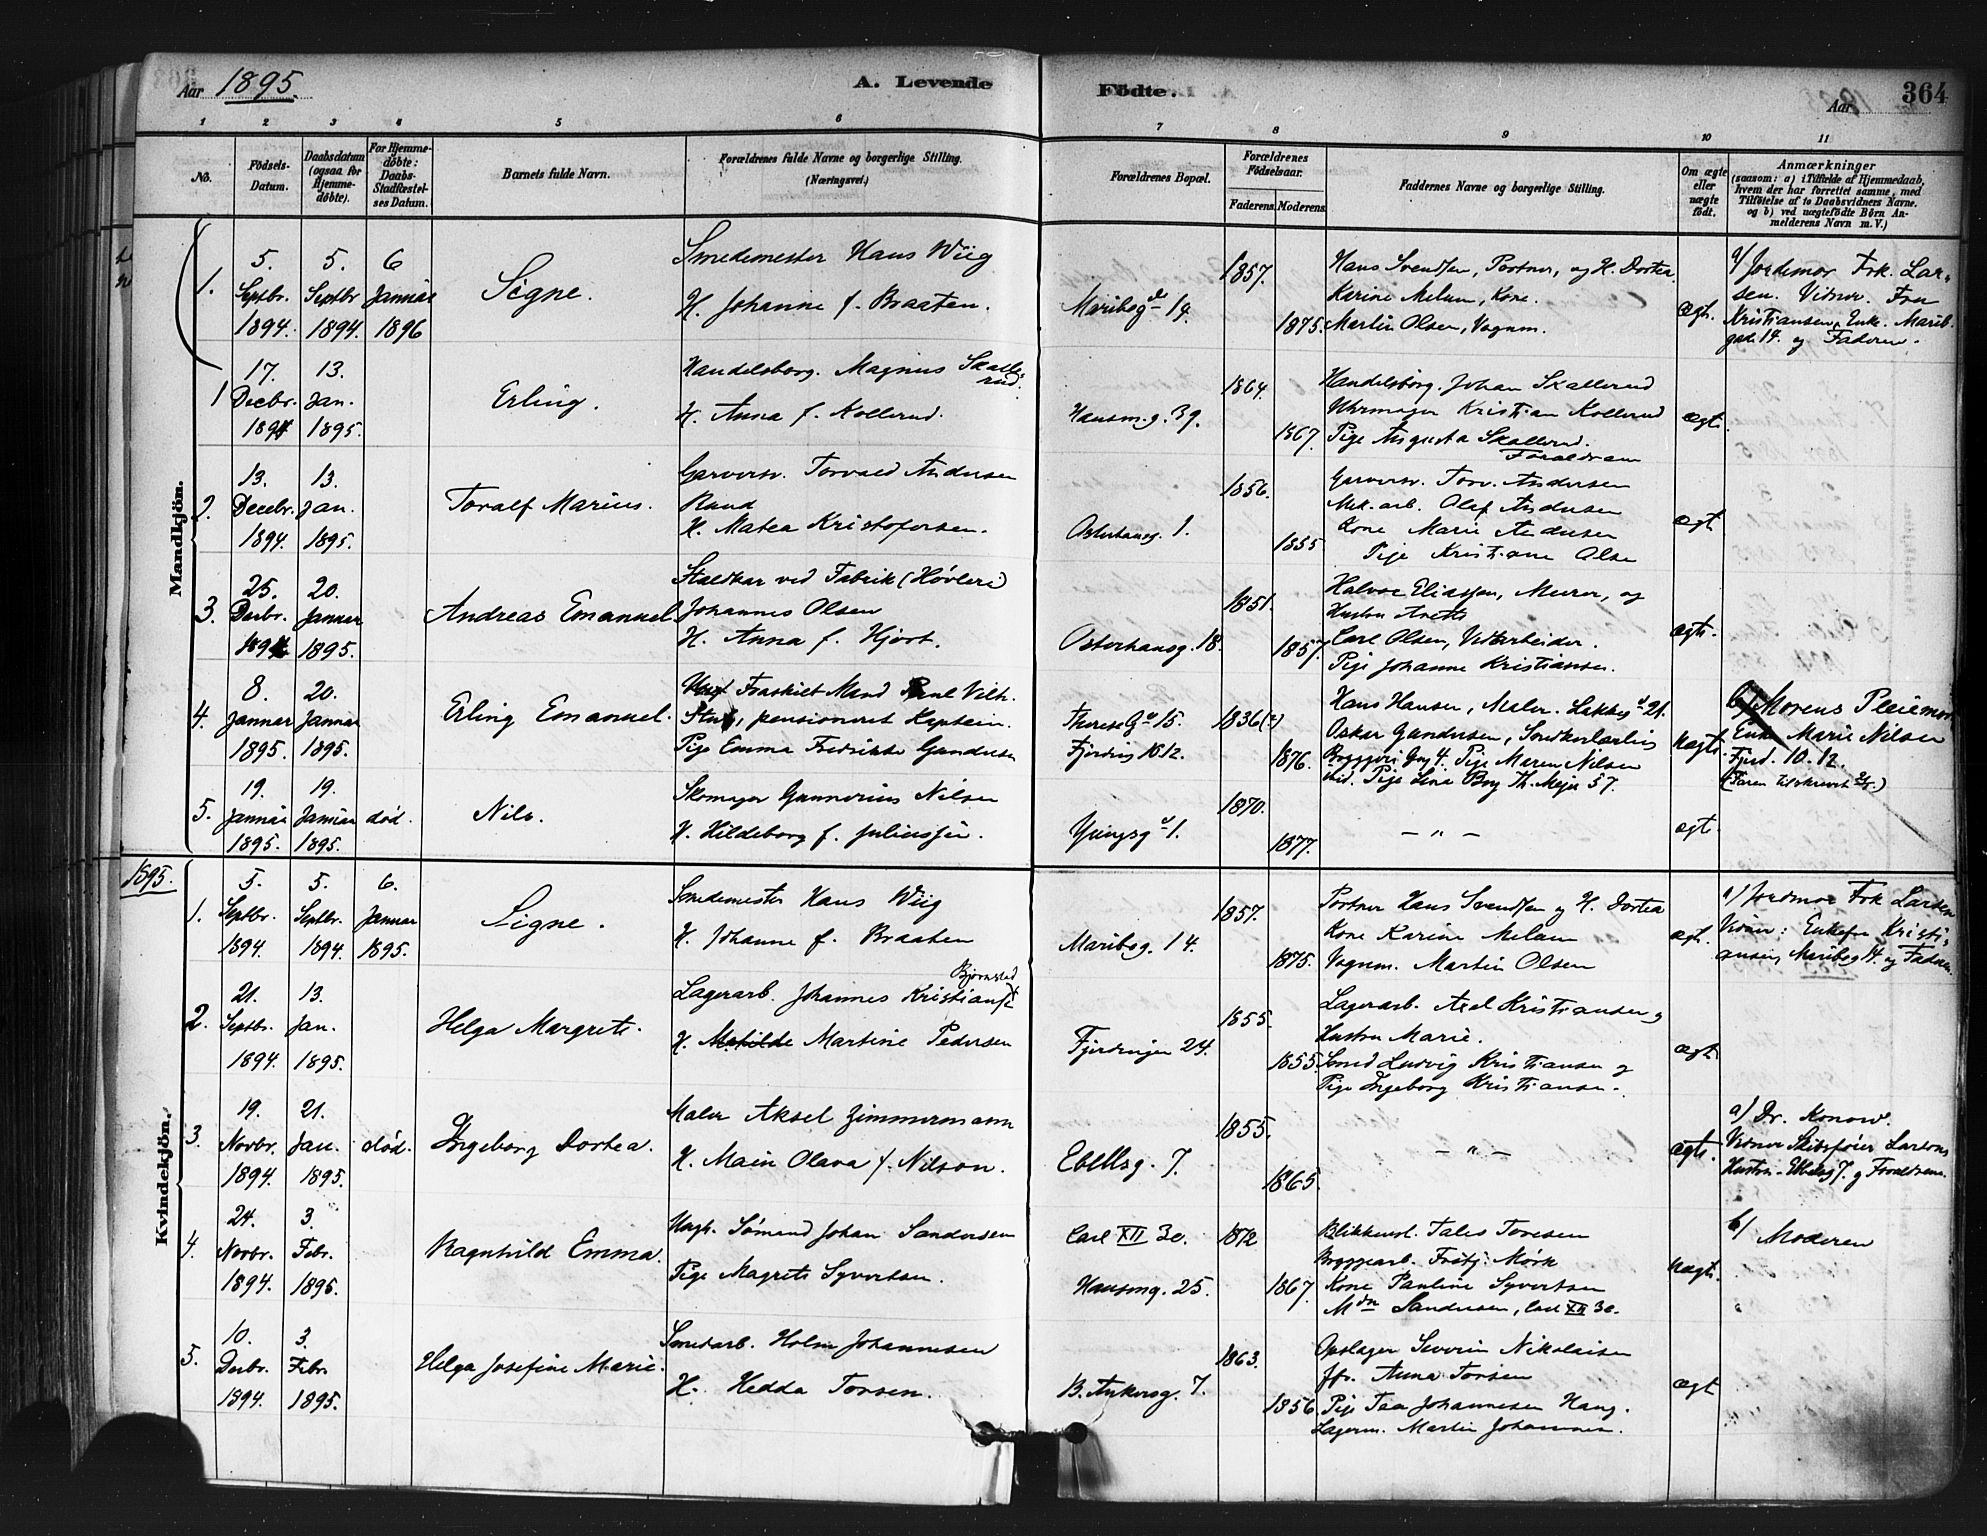 Aar 1895.
A. Levende
Fødte.
Aar
364
1 2 3 4 5 6 7 8 9 10 11
No.
Fødsels-Datum.
Daabsdatum (ogsaa for Hjemmedøbte).
For Hjemmedøbte: Daabs-Stadfæstelses Datum.
Barnets fulde Navn.
Forældrenes fulde Navne og borgerlige Stilling. (Næringsvei.)
Forældrenes Bopæl.
Forældrenes Fødselsaar.
Faderens. Moderens.
Faddernes Navne og borgerlige Stilling.
Om ægte eller uægte født.
Anmærkninger (saasom: a) i Tilfælde af Hjemmedaab, hvem der har forrettet samme, med Tilføielse af to Daabsvidners Navne. og b) ved uægtefødte Børn Anmelderens Navn m. V.)
Mandkjön.
1. 5. Septbr. 1894. 5. Septbr 1894. 6 Januar 1896
Signe.
Smedemester Hans Wiig
H. Johanne f. Braaten.
Maribog de 14.
1857. 1875.
Hans Svendsen, Portner, og H. Dortea
Karine Melum, Kone.
Martin Olsen, Vognm.
ægt.
a/ Jordemor Frk. Larsen. Vidner. Fru
Kristiansen, Enke. Maribgade 14. og Faderen.
1 17. Decbr. 1894 13. Jan. 1895.
Erling.
Handelsborg. Magnus Skallerud.
H. Anna f. Kollerud.
Hausm.g. 39.
1864. 1867.
Handelsborg. Johan Skallerud
Uhrmager Kristian Kollerud
Pige Augusta Skallerud.
Forældrene
ægt.
2. 13. Decebr. 1894. 13. Jan. 1895.
Toralf Marius.
Garversv. Torvald Andersen
Rund
H. Matea Kristofersen.
Osterhausg. 1.
1856. 1855
Garversv. Torv. Andersen
Mek. arb. Olaf Andersen
Kone Marie Andersen
Pige Kristiane Olse
ægt
3. 25. Decbr. 1894 20. Januar 1895.
Andreas Emanuel.
Staldkar ved Fabrik (Høvleri)
Johannes Olsen
H. Anna f. Hjort.
Osterhausg. 18.
1851. 1857.
Halvor Eliassen, Murer, og
Hustru Anette
Carl Olsen, Vidtarbeider.
Pige Johanne Kristiansen.
ægte.
4. 8. Januar 1895. 20. Januar 1895.
Erling Emanuel.
Fraskilt Mand Paul Vilh.
pensioneret Kaptein.
Pige Emma Fredrikke Gundersen
Therese G. 15.
Fjerding 10.12.
1836(?) 1876.
Hans Hansen, Maler. Lakkeg. 21.
Oskar Gundersen,
Bryggeri Gg 4. Pige Maren Nilsen
ibid. Pige Lina Berg Th. Mejer 57.
uægte.
b/ Morens Pleiemor
Enke Marie Nilsen
Fjerd. 10. 12.
5. 19. Januar 1895. 19. Januar 1895. død.
Nils.
Skomager Gunnerius Nilsen
H. Hildeborg f. Juliussen.
Yungsg. 1.
1870. 1877.
– " –
ægt.
1895.
Kvindekjön.
1. 5. Septbr. 1894. 5. Septbr. 1894. 6. Januar 1895.
Signe.
Smedemester Hans Wiig
H. Johanne f. Braaten
Maribog. 14.
1857. 1875.
Portner Hans Svendsen og H. Dortea
Kone Karine Melum
Vognm. Martin Olsen
ægt.
a/ Jordmor Frk Larsen
Vidner: Enkefru Kristiansen, Maribog 14. og Faderen.
2. 21. Septbr. 1894. 13. Jan. 1895.
Helga Margrete.
Bjørnstad
Lagerarb. Johannes Kristians
H. Mathilde Martine Pedersen
Fjerdingen 24.
1855. 1855.
Lagerarb. Axel Kristiansen og
Hustru Marie.
Smed Ludvig Kristiansen og
Pige Ingeborg Kristiansen.
ægt
3. 19. Novbr. 1894. 21. Jan. 1895. død.
Ingeborg Dortea.
Maler Aksel Zimmermann
H. Main Olava f. Nilson.
Ebellsg. 7.
1855. 1865.
– " –
ægte.
a/ Dr. Konow.
Vidner Skibsfører Larsens
Hustru Ebelsg 7. og Forældrene.
4. 24. Novbr. 1894 3. Febr. 1895.
Ragnhild Emma.
Ungk. Sømand Johan Sandersen
Pige Magrete Syvertsen.
Carl XII 30.
Hausmg. 25.
1872 1867
Blikkensl. Tales Toresen
Bryggearb. Fritj. Mørk
Kone Pauline Syvertsen
Mdm Sandersen, Carl XII 30.
uægt.
b/ Moderen
5. 10. Decbr. 1894 3. Febr 1895.
Helga Josefine Marie.
Smedarb. Holm Johannesen
H. Hedda Torsen.
B. Ankersg. 7.
1863. 1856.
Opslager Severin Nikolaisen
Anna Torsen
Pige Tea Johannesen Haug.
Lagerm. Martin Johannesen.
ægt